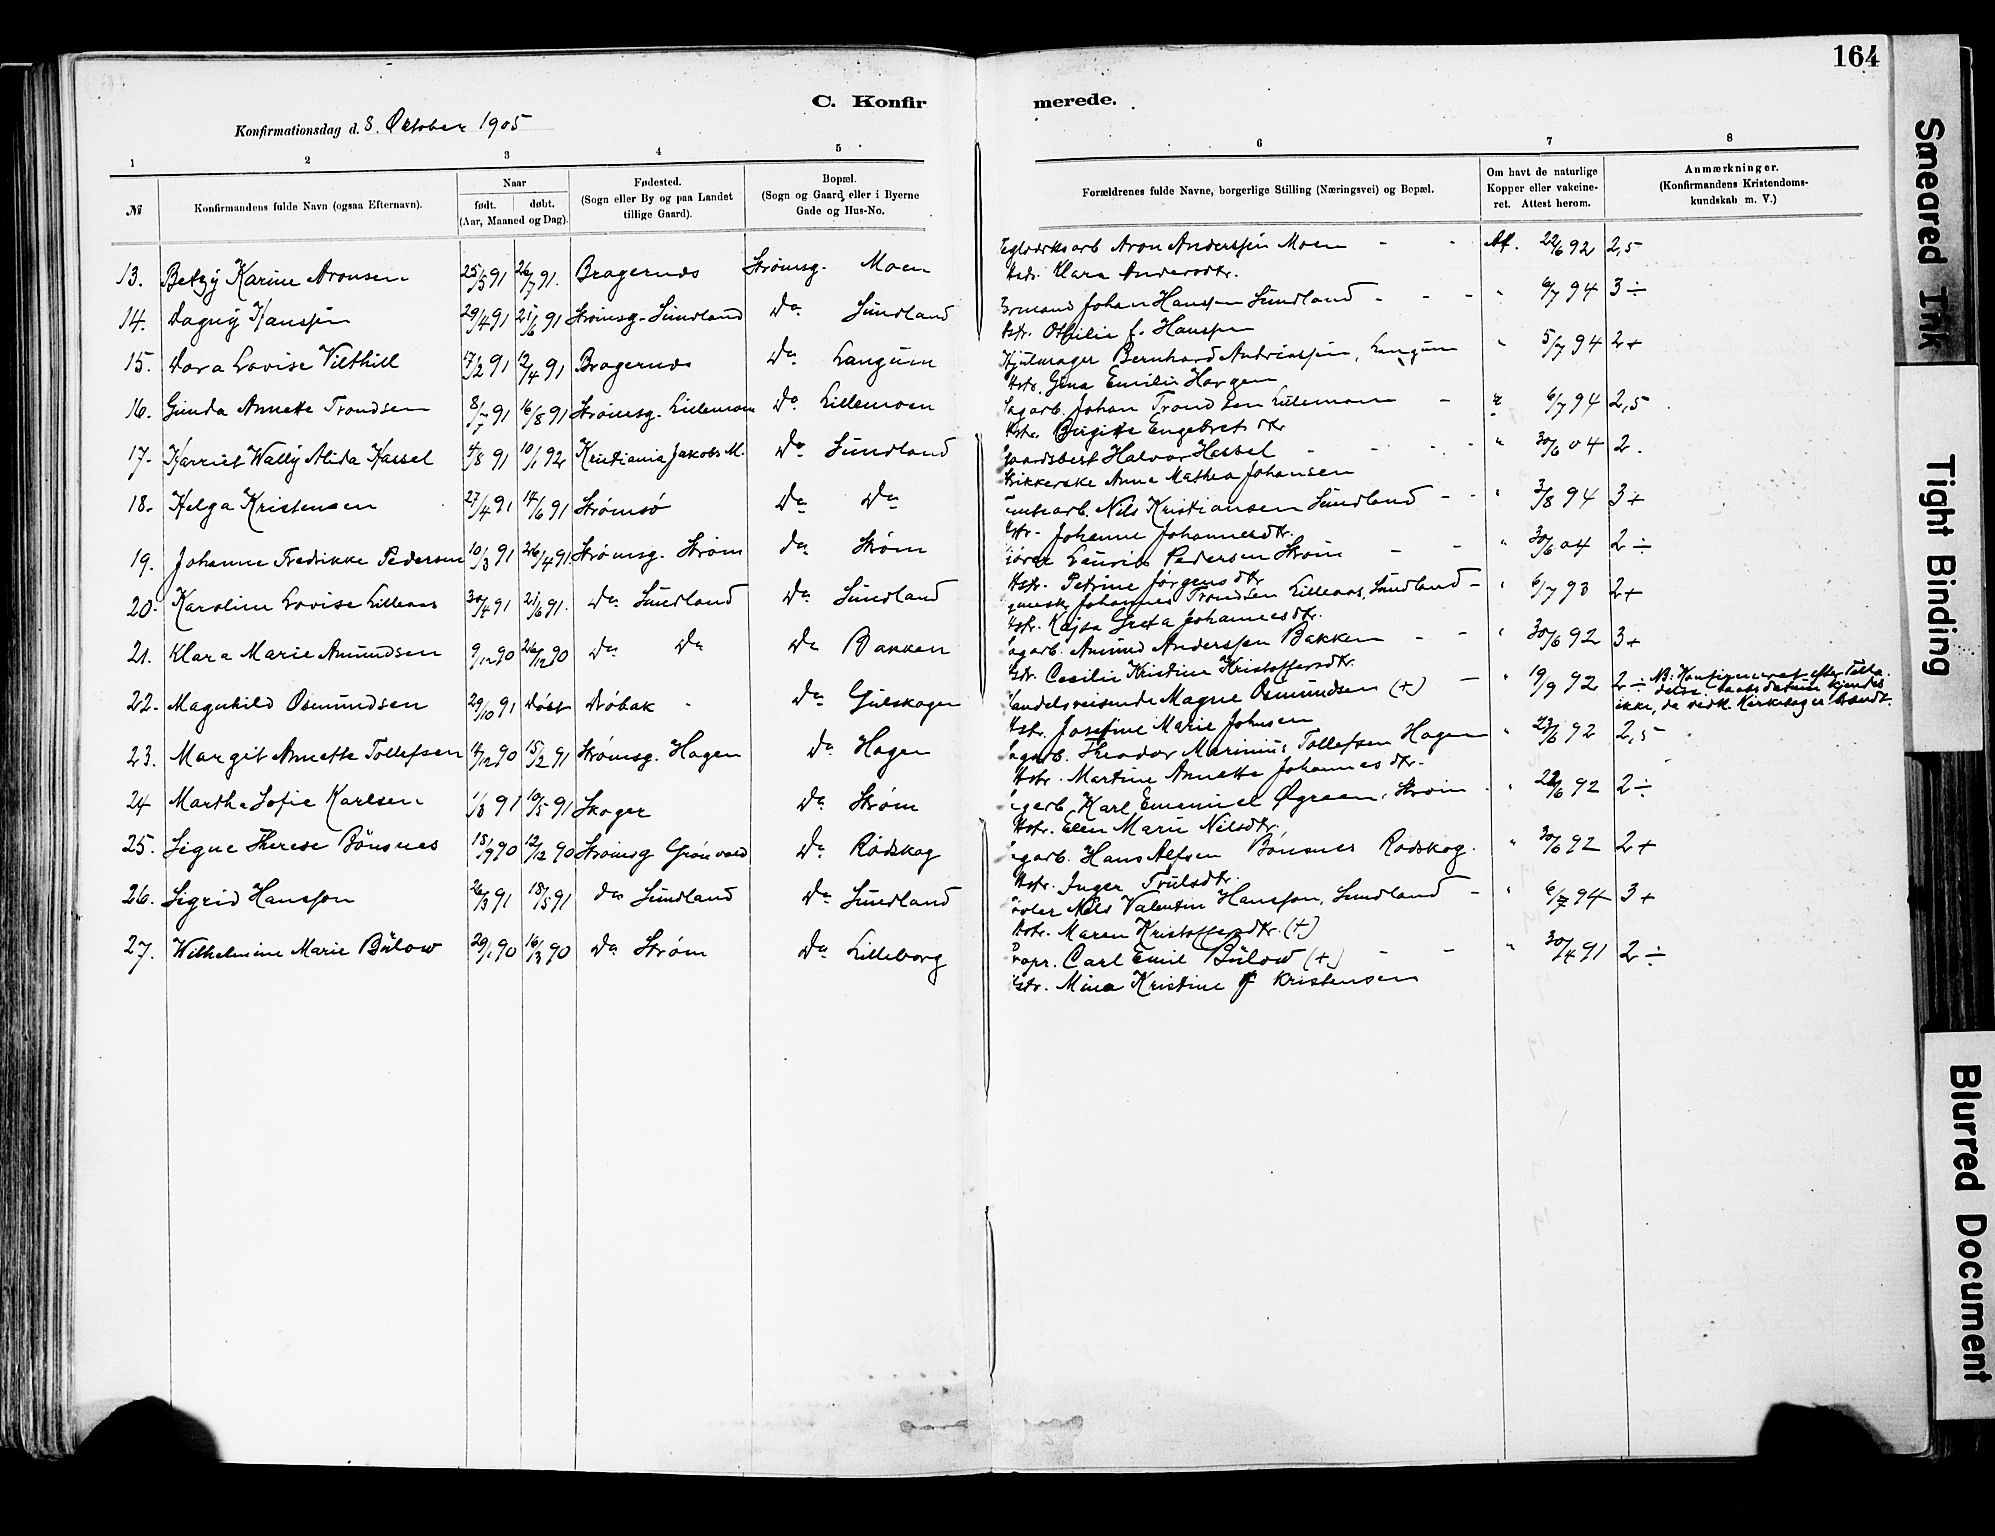 164
C. Konfirmerede.
Konfirmationsdag d. 8. Oktober 1905
1 2 3 4 5 6 7 8
№
Konfirmandens fulde Navn (ogsaa Efternavn).
Naar
født. døbt.
(Aar, Maaned og Dag).
Fødested.
(Sogn eller By og paa Landet
tillige Gaard).
Bopæl.
(Sogn og Gaard eller i Byerne
Gade og Hus-No.
Forældrenes fulde Navne, borgerlige Stilling (Næringsvei) og Bopæl.
Om havt de naturlige
Kopper eller vakcine-
ret. Attest herom.
Anmærkninger.
(Konfirmandens Kristendoms-
kundskab m. V.)
13. Betzy Karine Aronsen 25/3 91 26/7 91. Bragernæs Strømsg. Moen Teglværksarb Aron Anderssen Moen - - Af. 22/6 92 2,5
Hstr. Klara Andersdtr.
14. Dagny Hanssen 29/4 91 21/6 91 Strømsg. Sundland Do Sundland Formand Johan Hanssen Sundland - - - " 6/7 94 3 ÷
Hstr. Othilie f. Hanssen
15. Dora Lovise Vilthill 17/2 91 12/4 91 Bragernæs Do Langum Hjulmager Bernhard Andreassen, Langum " 5/7 94 2+
Hstr. Gina Emilie Horgen
16. Gunda Annette Trondsen 8/7 91 16/8 91 Strømsg. Lillemoen Do Lillemoen Sagarb. Johan Trondsen Lillemoen - " 6/7 94 2,5
Hstr. Birgitte Engebretsdtr
17. Harriet Wally Alida Hassel 4/8 91 10/1 92 Kristiania Jakobs M. Do Sundland Gaardsbest Halvor Hassel - - - " 30/6 04 2.
Strikkerske Anna Mathea Johansen
18. Helga Kristensen 27/4 91 14/6 91 Strømsø Do Do Tomtearb. Nils Kristiansen Sundland - - " 3/8 94 3+
Hstr. Johanne Johannesdtr.
19. Johanne Fredrikke Pedersen 10/3 91 26/4 91. Strømsg. Strøm Do Strøm Kjører Laurits Pedersen Strøm - - " 30/6 04 2 ÷
Hstr. Petrine Jørgensdtr
20. Karoline Lovise Lilleaas 30/4 91 21/6 91. Do Sundland Do Sundland Johannes Trondsen Lilleaas, Sundland - " 6/7 93 2+
Hstr. Kajsa Greta Johannesdtr.
21. Klara Marie Amundsen 9/12 90 26/12 90 Do Do Do Bakken Sagarb. Amund Anderssen Bakken - - " 30/6 92 3+
Hstr. Cecilie Kristine Kristoffersdtr.
22. Magnhild Osmundsen 29/10 91 Døbt Drøbak - Do Gulskogen Handelsreisende Magne Osmundsen (+) - " 19/9 92 2 ÷ NB. Konfirmeret efter Tilla-
delse. Daabsdatum kjendes
ikke, da vedk. Kirkebøger brændt.
Hstr. Josefine Marie Johnsen
23. Margit Annette Tollefsen 14/12 90 15/2 91 Strømsg. Hagen Do Hagen Sagarb. Theodor Marinius Tollefsen Hagen " 23/6 92 2,5
Hstr. Martine Annette Johannesdtr.
24 Martha Sofie Karlsen 1/3 91 10/5 91 Skoger Do Strøm Sagarb. Karl Emanuel Øgreen, Strøm - " 22/6 92 2 ÷
Hstr. Elen Marie Nilsdtr.
25. Signe Therese Bønsnes 15/9 90 12/12 90 Strømsg Grønvold Do Rødskog Sagarb. Hans Alfsen Bønsnes Rødskog. " 30/6 92 2+
Hstr. Inger Trulsdtr.
26. Sigrid Hanssen 26/3 91 18/5 91 Do Sundland Do Sundland Høvler Nils Valentin Hanssen, Sundland - " 6/7 94 3+
Hstr. Maren Kristoffersdtr. (+)
27. Wilhelmine Marie Bülow 29/1 90 16/3 90 Do Strøm Do Lilleborg Propr. Carl Emil Bülow (+) - - " 30/4 91 2 ÷
Hstr. Mina Kristine f Kristensen
Smeared Ink
Tight Binding
Blurred Document